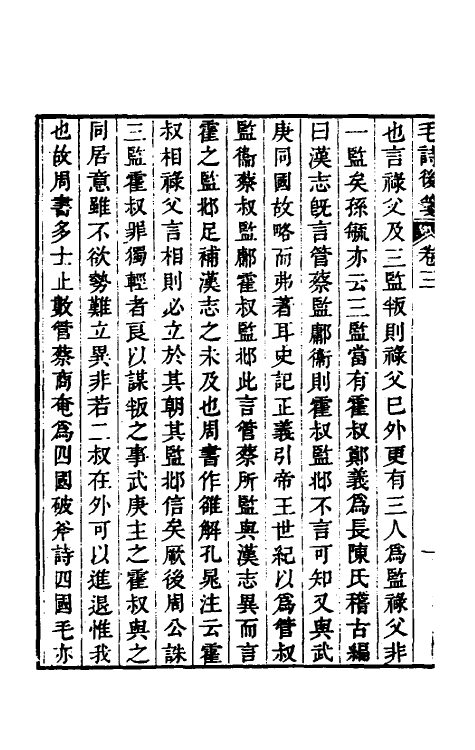 毛詩後箋 卷三 一
也言祿父及三監叛則祿父已外更有三人為監祿父非
一監矣孫毓亦云三監當有霍叔鄭義為長陳氏稽古編
曰漢志旣言管蔡監鄘衞則霍叔監邶不言可知又與武
庚同國故略而弗著耳史記正義引帝王世紀以為管叔
監衞蔡叔監鄘霍叔監邶此言管蔡所監與漢志異而言
霍之監邶足補漢志之未及也周書作雒解孔晁注云霍
叔相祿父言相則必立於其朝其監邶信矣厥後周公誅
三監霍叔罪獨輕者良以謀叛之事武庚主之霍叔與之
同居意雖不欲勢難立異非若二叔在外可以進退惟我
也故周書多士止數管蔡商奄為四國破斧詩四國毛亦